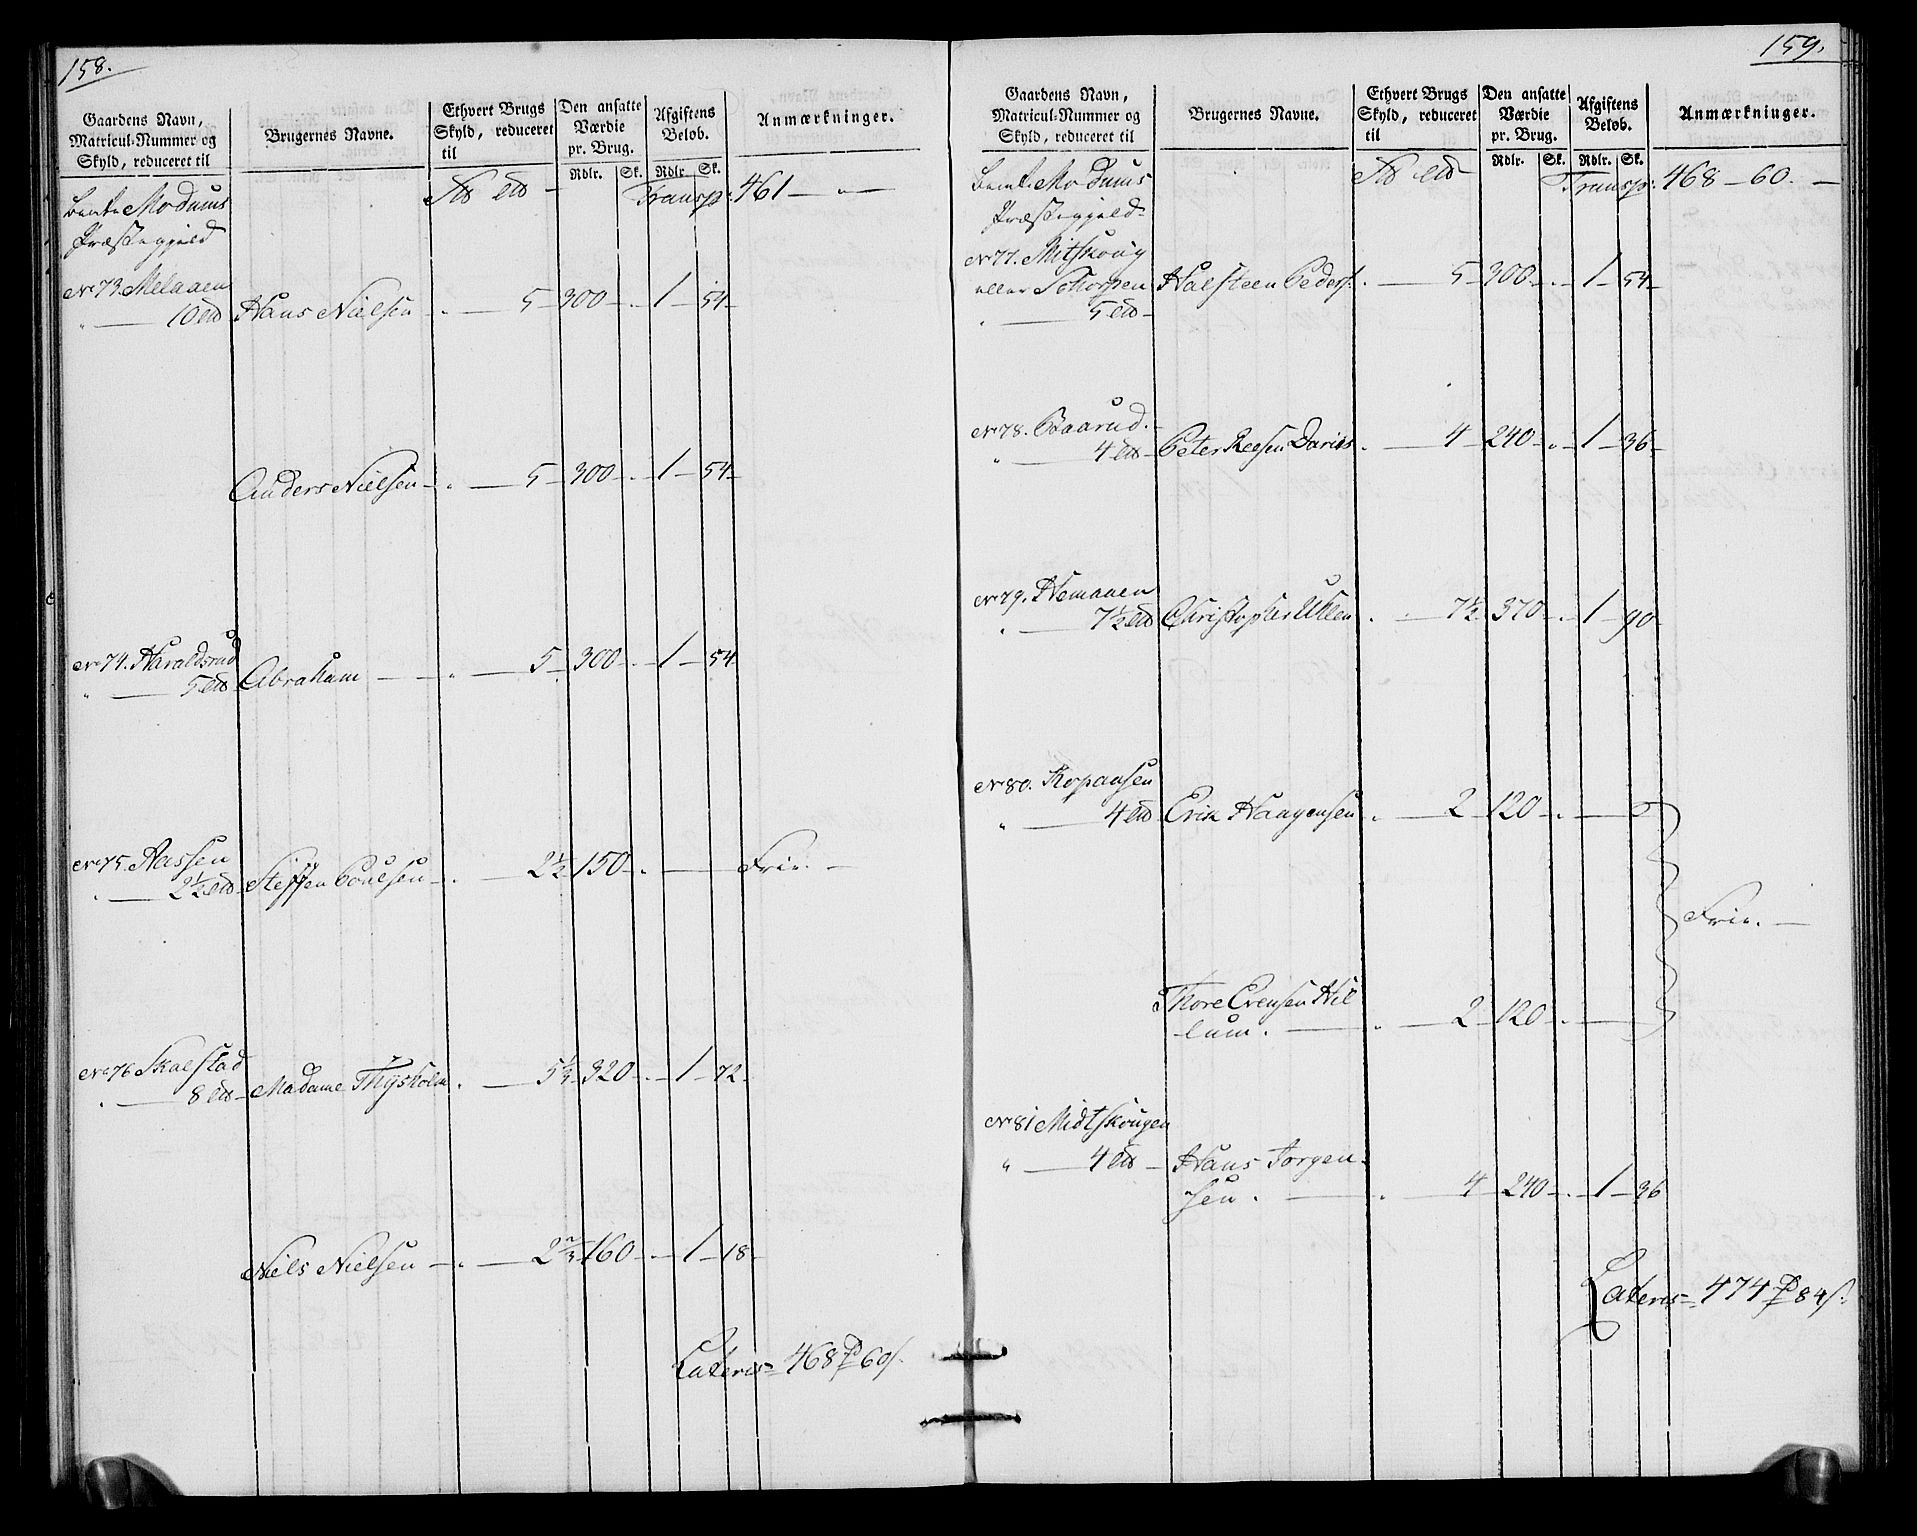 158.
Gaardens Navn, Matricul-Nummer og Skyld, reduceret til
Brugernes Navne.
Ethvert Brugs Skyld, reduceret til
Den ansatte Værdie pr. Brug.
Afgiftens Beløb.
Anmærkninger.
Rdlr. Sk. Rdlr. Sk.
Modums Transp: 461 — " —
Præstegjeld
No 73. Melaaen
" — 10 Hans Nielsen " — 5 — 300 — " — 1 — 54 —
Anders Nielsen — " — 5 — 300 — " — 1 — 54 —
No 74. Haraldsrud
" — 5 Abraham — " — 5 — 300 — " — 1 — 54
No 75. Aassen
" — 2½ Steffen Poulsen — " — 2½ 150 — " — Frie. —
No 76 Skalstad
" — 8 Madame Thyskolm " — 5⅓ 320 — " — 1 — 72 —
Niels Nielsen — " — 2⅔ 160 — " — 1 — 18 —
Lateris = 468 60
159.
Gaardens Navn, Matricul-Nummer og Skyld, reduceret til
Brugernes Navne.
Ethvert Brugs Skyld, reduceret til
Den ansatte Værdie pr. Brug.
Afgiftens Beløb.
Anmærkninger.
Rdlr. Sk. Rdlr. Sk.
Modums Transp: 468 — 60. —
Præstegjeld
No 77. Mitskoug
eller Schorpen Halsteen Peders: " — 5 — 300 — " — 1 — 54 —
" — 5
No 78. Baarud.
" — 4 Peter " — 4 — 240 — " — 1 — 36 —
No 79. Hemauen
" — 7½ Christopher Ulleen " — 7½ 370 — " — 1 — 90
No 80. Kopaasen
" — 4 Erik Haagensen " — 2 — 120 — " —
Frie. —
Thore Evensen Hil
lum. — " — 2 — 120 — " —
No 81 Midtskougen
" — 4 — Hans Jorgen-
sen. — " — 4 — 240 — " — 1 — 36
Lateris = 474 84